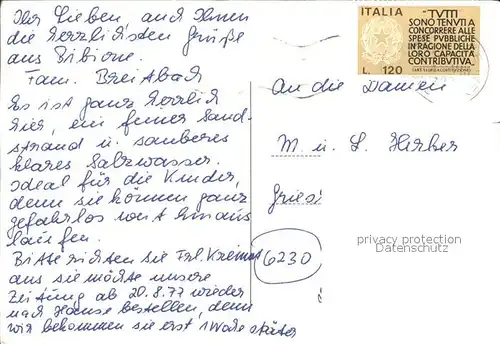 Ihr Lieben, auch Ihnen
die herzlichsten Grüße
aus Bibione.
Fam. Breitbach
Es ist ganz herrlich
hier, ein feiner Sand-
strand u. sauberes
klares Salzwasser.
Ideal für die Kinder,
denn sie können ganz
gefahrlos weit hinaus
laufen.
Bitte richten sie Frl.
aus sie möchte unsere
Zeitung ab 20.8.77 wieder
nach Hause bestellen, denn
wir bekommen sie erst 1 Woche später
ITALIA
"TUTTI
SONO TENUTI A
CONCORRERE ALLE
SPESE PUBBLICHE
IN RAGIONE DELLA
LORO CAPACITÀ
CONTRIBUTIVA"
L. 120
An die Damen
M. u. L.
Gries
6230
privacy protection
Datenschutz